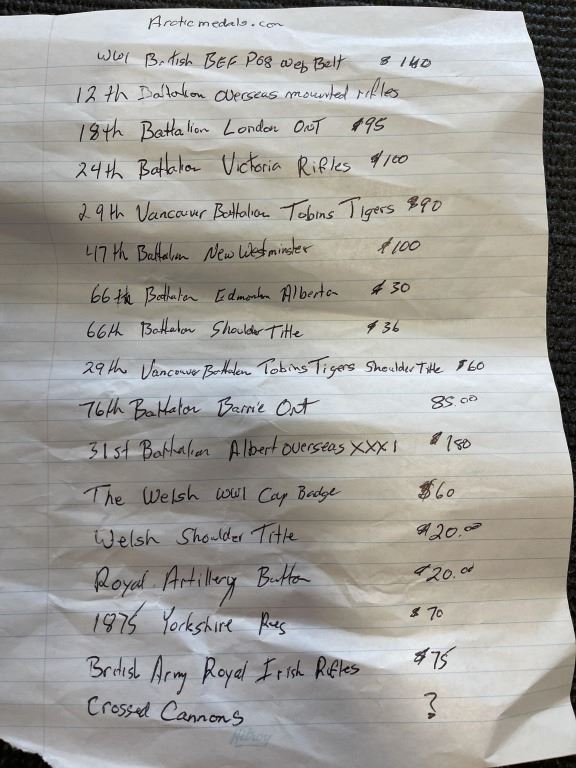 Arcticmedals.com
WW1 British BEF P08 Web Belt $ 140
12th Battalion overseas mounted rifles
18th Battalion London ONT $95
24th Battalion Victoria Rifles $100
29th Vancouver Battalion Tobins Tigers $90
47th Battalion New Westminster $100
66th Battalion Edmonton Alberta $30
66th Battalion Shoulder Title $36
29th Vancouver Battalion Tobins Tigers Shoulder Title $60
76th Battalion Barrie Ont 85.00
31st Battalion Albert overseas XXX1 $180
The Welsh WW1 Cap Badge $60
Welsh Shoulder Title $20.00
Royal Artillery Button $20.00
1875 Yorkshire Reg $70
British Army Royal Irish Rifles $75
Crossed Cannons ?
Hilroy